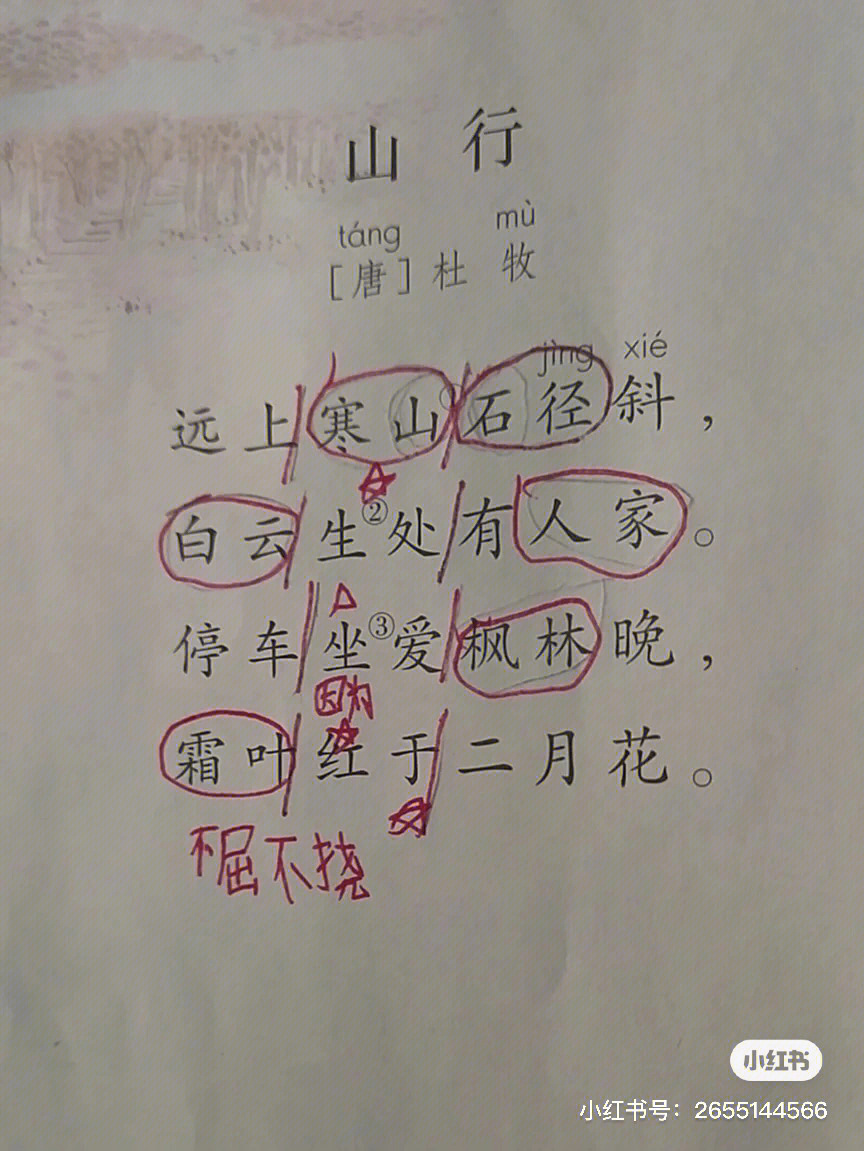 山 行
táng mù
[唐]杜 牧
jìng xié
远上寒山①石径斜，
白云生②处有人家。
停车坐③爱枫林晚，
因为
霜叶红于二月花。
不屈不挠
小红书
小红书号：2655144566